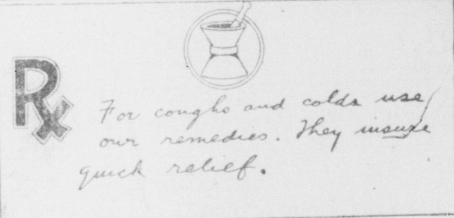 Rx
For coughs and colds use
our remedies. They insure
quick relief.